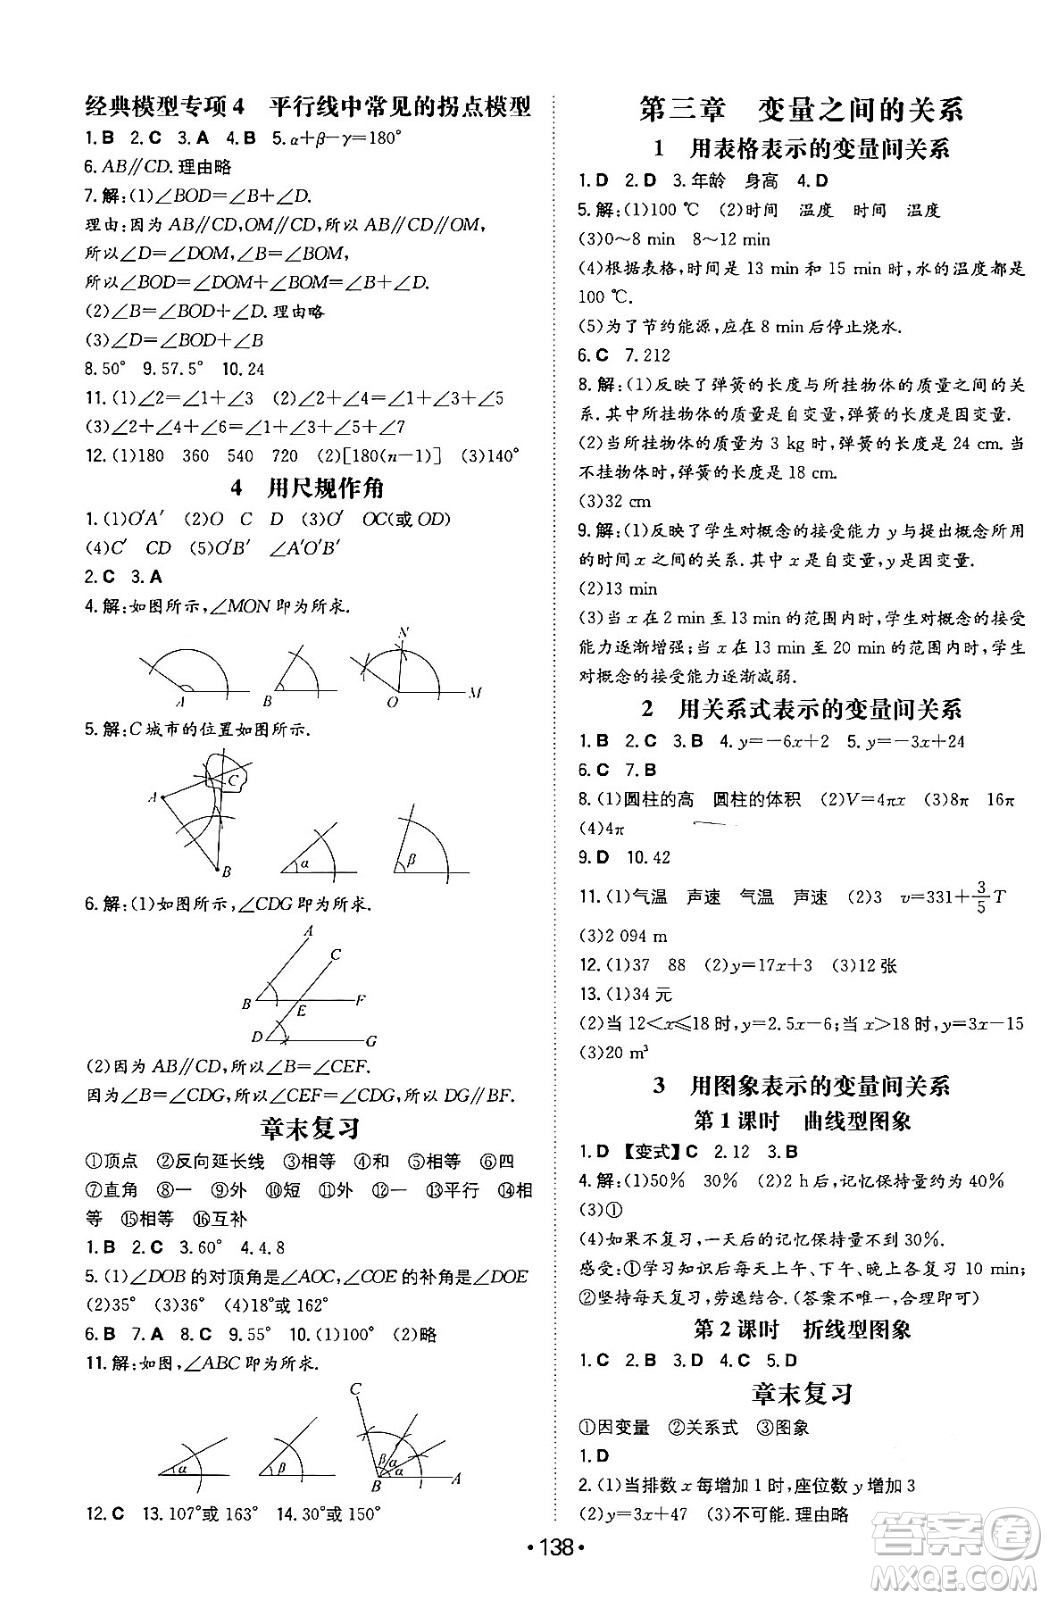 经典模型专项4　平行线中常见的拐点模型
1.B　2.C　3.A　4.B　5.α+β-γ=180°
6.AB∥CD.理由略
7.解:(1)∠BOD=∠B+∠D.
理由:因为AB∥CD,OM∥CD,所以AB∥CD∥OM,
所以∠D=∠DOM,∠B=∠BOM,
所以∠BOD=∠DOM+∠BOM=∠B+∠D.
(2)∠B=∠BOD+∠D.理由略
(3)∠D=∠BOD+∠B
8.50°　9.57.5°　10.24
11.(1)∠2=∠1+∠3　(2)∠2+∠4=∠1+∠3+∠5
(3)∠2+∠4+∠6=∠1+∠3+∠5+∠7
12.(1)180　360　540　720　(2)[180(n-1)]　(3)140°
4　用尺规作角
1.(1)O′A′　(2)O　C　D　(3)O′　OC(或OD)
(4)C′　CD　(5)O′B′　∠A′O′B′
2.C　3.A
4.解:如图所示,∠MON即为所求.
A　B　O　N　M
5.解:C城市的位置如图所示.
A　C　B　α　β
6.解:(1)如图所示,∠CDG即为所求.
A　C　B　E　F　D　G
(2)因为AB∥CD,所以∠B=∠CEF.
因为∠B=∠CDG,所以∠CEF=∠CDG,所以DG∥BF.
章末复习
①顶点　②反向延长线　③相等　④和　⑤相等　⑥四
⑦直角　⑧一　⑨外　⑩短　⑪外　⑫一　⑬平行　⑭相
等　⑮相等　⑯互补
1.B　2.C　3.60°　4.4.8
5.(1)∠DOB的对顶角是∠AOC,∠COE的补角是∠DOE
(2)35°　(3)36°　(4)18°或162°
6.B　7.A　8.C　9.55°　10.(1)100°　(2)略
11.解:如图,∠ABC即为所求.
α　β　C　β　α　α　B　A
12.C　13.107°或163°　14.30°或150°
第三章　变量之间的关系
1　用表格表示的变量间关系
1.D　2.D　3.年龄　身高　4.D
5.解:(1)100 ℃　(2)时间　温度　时间　温度
(3)0～8 min　8～12 min
(4)根据表格,时间是13 min和15 min时,水的温度都是
100 ℃.
(5)为了节约能源,应在8 min后停止烧水.
6.C　7.212
8.解:(1)反映了弹簧的长度与所挂物体的质量之间的关
系.其中所挂物体的质量是自变量,弹簧的长度是因变量.
(2)当所挂物体的质量为3 kg时,弹簧的长度是24 cm.当
不挂物体时,弹簧的长度是18 cm.
(3)32 cm
9.解:(1)反映了学生对概念的接受能力y与提出概念所用
的时间x之间的关系.其中x是自变量,y是因变量.
(2)13 min
(3)当x在2 min至13 min的范围内时,学生对概念的接受
能力逐渐增强;当x在13 min至20 min的范围内时,学生
对概念的接受能力逐渐减弱.
2　用关系式表示的变量间关系
1.B　2.C　3.B　4.y=-6x+2　5.y=-3x+24
6.C　7.B
8.(1)圆柱的高　圆柱的体积　(2)V=4πx　(3)8π　16π
(4)4π
9.D　10.42
11.(1)气温　声速　气温　声速　(2)3　v=331+3/5T
(3)2 094 m
12.(1)37　88　(2)y=17x+3　(3)12张
13.(1)34元
(2)当12<x≤18时,y=2.5x-6;当x>18时,y=3x-15
(3)20 m³
3　用图象表示的变量间关系
第1课时　曲线型图象
1.D　【变式】C　2.12　3.B
4.解:(1)50%　30%　(2)2 h后,记忆保持量约为40%
(3)①
(4)如果不复习,一天后的记忆保持量不到30%.
感受:①学习知识后每天上午、下午、晚上各复习10 min;
②坚持每天复习,劳逸结合.(答案不唯一,合理即可)
第2课时　折线型图象
1.C　2.B　3.D　4.C　5.D
章末复习
①因变量　②关系式　③图象
1.D
2.(1)当排数x每增加1时,座位数y增加3
(2)y=3x+47　(3)不可能.理由略
·138·
答案圈
MXQE.COM